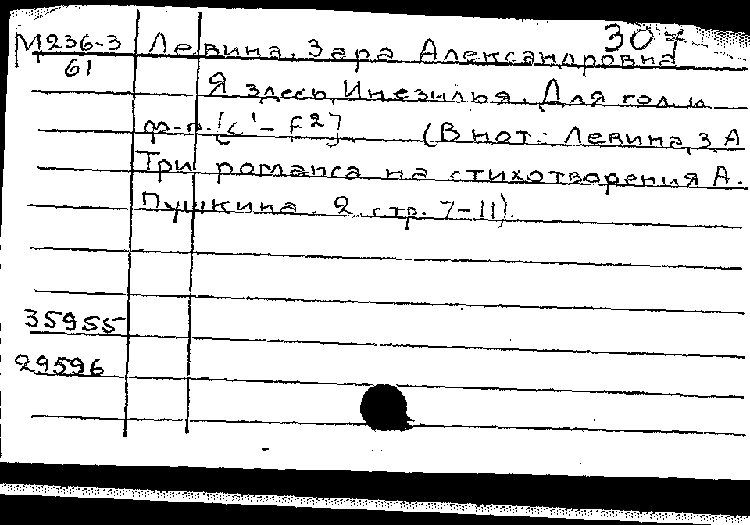 307
М236-3 Левина, Зара Александровна
61
Я здесь, Инезилья. Для гол. и
ф-п. [c¹ - f²] (В нот.: Левина, З.А
Три романса на стихотворения А.
Пушкина. 2. стр. 7-11)
35955
29596